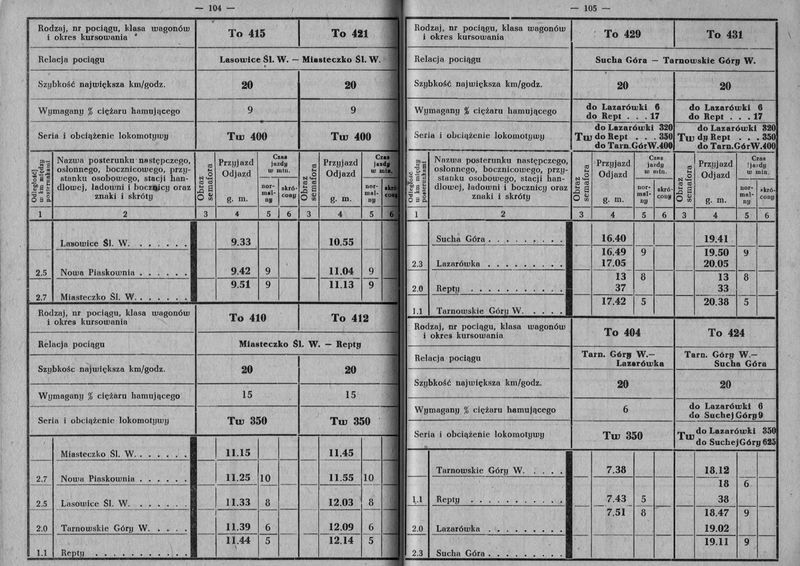 — 104 —
Rodzaj, nr pociągu, klasa wagonów i okres kursowania To 415 To 421
Relacja pociągu Lasowice Śl. W. — Miasteczko Śl. W.
Szybkość największa km/godz. 20 20
Wymagany % ciężaru hamującego 9 9
Seria i obciążenie lokomotywy Tw 400 Tw 400
Odległość w km między posterunkami Nazwa posterunku następczego, osłonnego, bocznicowego, przystanku osobowego, stacji handlowej, ładowni i bocznicy oraz znaki i skróty Obraz semafora Przyjazd Odjazd g. m. Czas jazdy w min. normalny skrócony Obraz semafora Przyjazd Odjazd g. m. Czas jazdy w min. normalny skrócony
1 2 3 4 5 6 3 4 5 6
Lasowice Śl. W. . . . . . . 9.33 10.55
2.5 Nowa Piaskownia . . . . . . 9.42 9 11.04 9
2.7 Miasteczko Śl. W. . . . . . . 9.51 9 11.13 9
Rodzaj, nr pociągu, klasa wagonów i okres kursowania To 410 To 412
Relacja pociągu Miasteczko Śl. W. — Repty
Szybkość największa km/godz. 20 20
Wymagany % ciężaru hamującego 15 15
Seria i obciążenie lokomotywy Tw 350 Tw 350
Miasteczko Śl. W. . . . . . . 11.15 11.45
2.7 Nowa Piaskownia . . . . . . 11.25 10 11.55 10
2.5 Lasowice Śl. W. . . . . . . 11.33 8 12.03 8
2.0 Tarnowskie Góry W. . . . . 11.39 6 12.09 6
1.1 Repty . . . . . . . . . . 11.44 5 12.14 5
— 105 —
Rodzaj, nr pociągu, klasa wagonów i okres kursowania To 429 To 431
Relacja pociągu Sucha Góra — Tarnowskie Góry W.
Szybkość największa km/godz. 20 20
Wymagany % ciężaru hamującego do Lazarówki 6 do Rept . . . 17 do Lazarówki 6 do Rept . . . 17
Seria i obciążenie lokomotywy Tw do Lazarówki 320 do Rept . . . 350 do Tarn.GórW.400 Tw do Lazarówki 320 do Rept . . . 350 do Tarn.GórW.400
Odległość w km między posterunkami Nazwa posterunku następczego, osłonnego, bocznicowego, przystanku osobowego, stacji handlowej, ładowni i bocznicy oraz znaki i skróty Obraz semafora Przyjazd Odjazd g. m. Czas jazdy w min. normalny skrócony Obraz semafora Przyjazd Odjazd g. m. Czas jazdy w min. normalny skrócony
1 2 3 4 5 6 3 4 5 6
Sucha Góra . . . . . . . . . 16.40 19.41
16.49 9 19.50 9
2.3 Lazarówka . . . . . . . . . 17.05 20.05
13 8 13 8
2.0 Repty . . . . . . . . . . . 37 33
1.1 Tarnowskie Góry W. . . . . 17.42 5 20.38 5
Rodzaj, nr pociągu, klasa wagonów i okres kursowania To 404 To 424
Relacja pociągu Tarn. Góry W.— Lazarówka Tarn. Góry W.— Sucha Góra
Szybkość największa km/godz. 20 20
Wymagany % ciężaru hamującego 6 do Lazarówki 6 do Suchej Góry 9
Seria i obciążenie lokomotywy Tw 350 Tw do Lazarówki 350 do SuchejGóry 625
Tarnowskie Góry W. . . . . 7.38 18.12
18 6
1.1 Repty . . . . . . . . . . . 7.43 5 38
7.51 8 18.47 9
2.0 Lazarówka . . . . . . . . . 19.02
2.3 Sucha Góra . . . . . . . . . 19.11 9